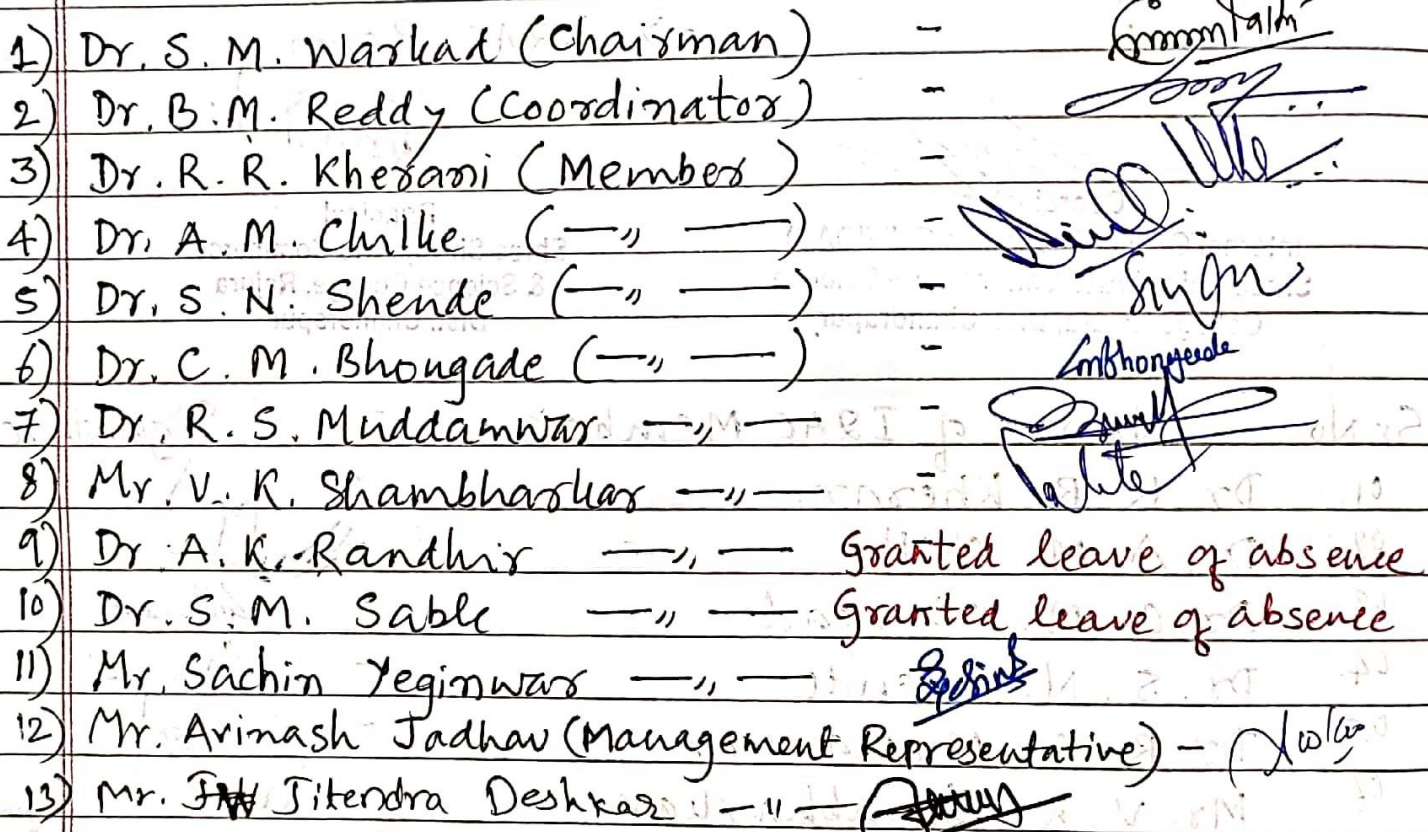 1) Dr. S. M. Warkad (Chairman) -
2) Dr. B. M. Reddy (Coordinator) -
3) Dr. R. R. Kherani (Member) -
4) Dr. A. M. Chilke (—„—) -
5) Dr. S. N. Shende (—„—) -
6) Dr. C. M. Bhongade (—„—) - CmBhongade
7) Dr. R. S. Muddamwar —„— -
8) Mr. V. K. Shambharkar —„— -
9) Dr. A. K. Randhir —„— Granted leave of absence
10) Dr. S. M. Sable —„— Granted leave of absence
11) Mr. Sachin Yeginwar —„—
12) Mr. Avinash Jadhav (Management Representative) -
13) Mr. Jitendra Deshkar —„—